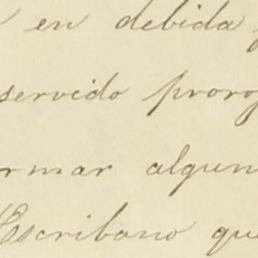 en debida
servido prorog
rmar algun
Escribano que